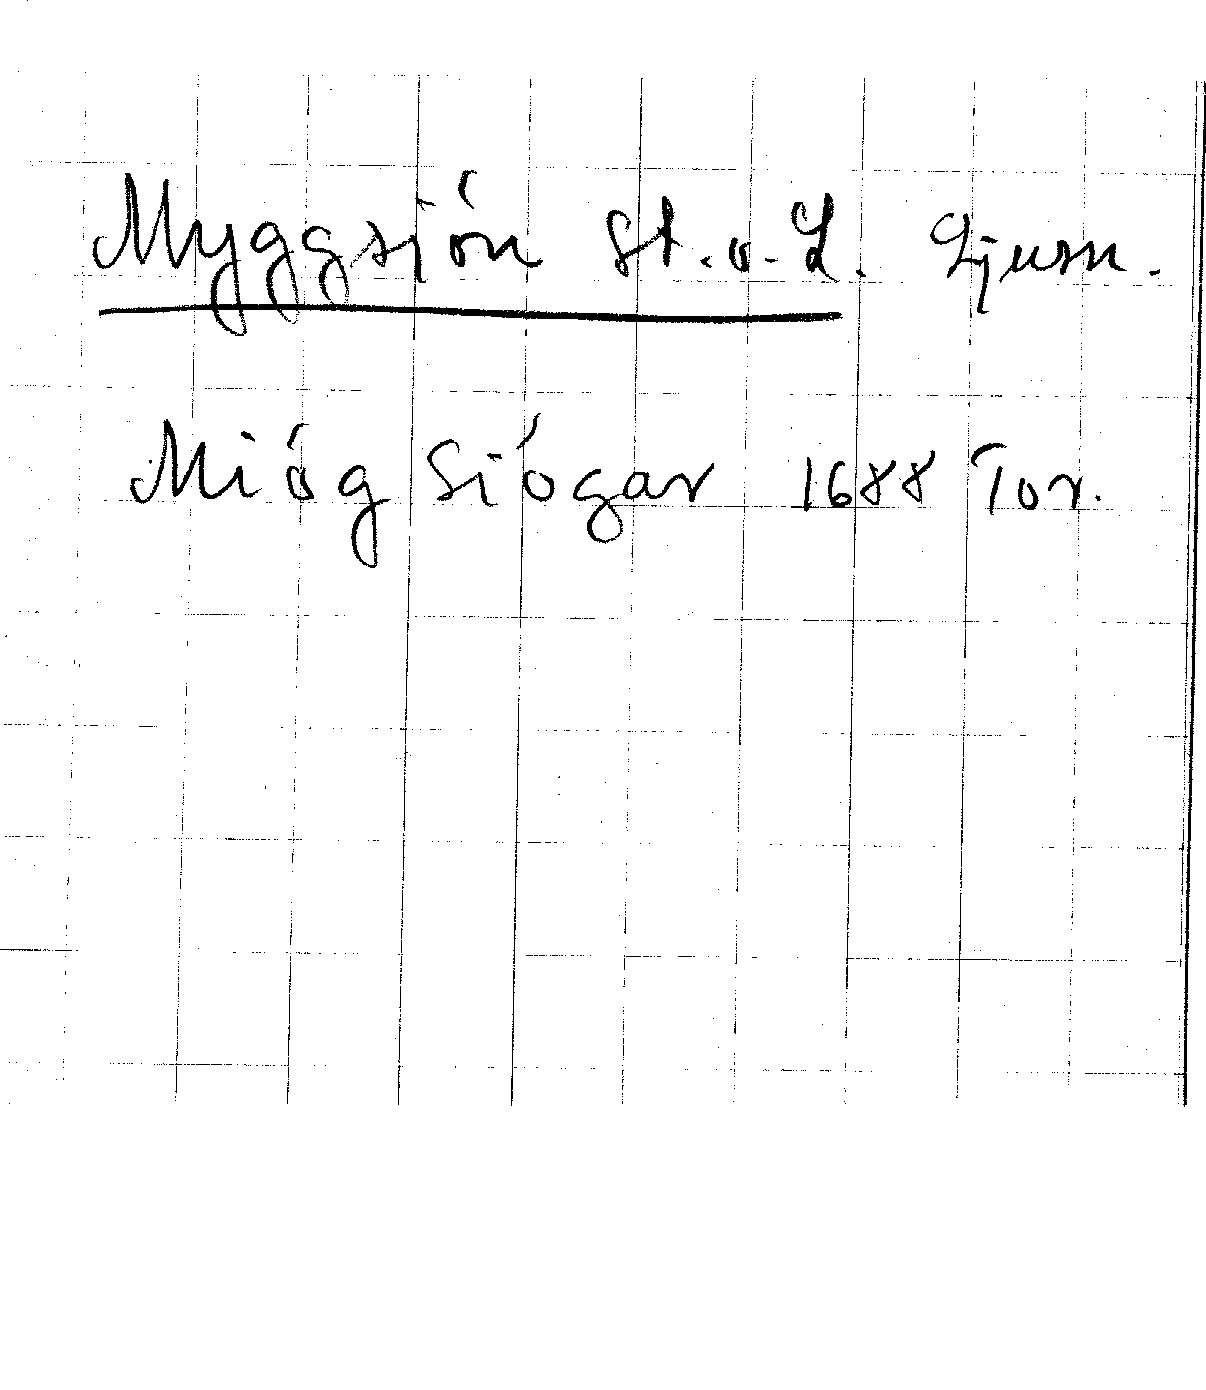 Myggsjön St. o. L. Ljusn.
Mióg Siógar 1688 Tor.